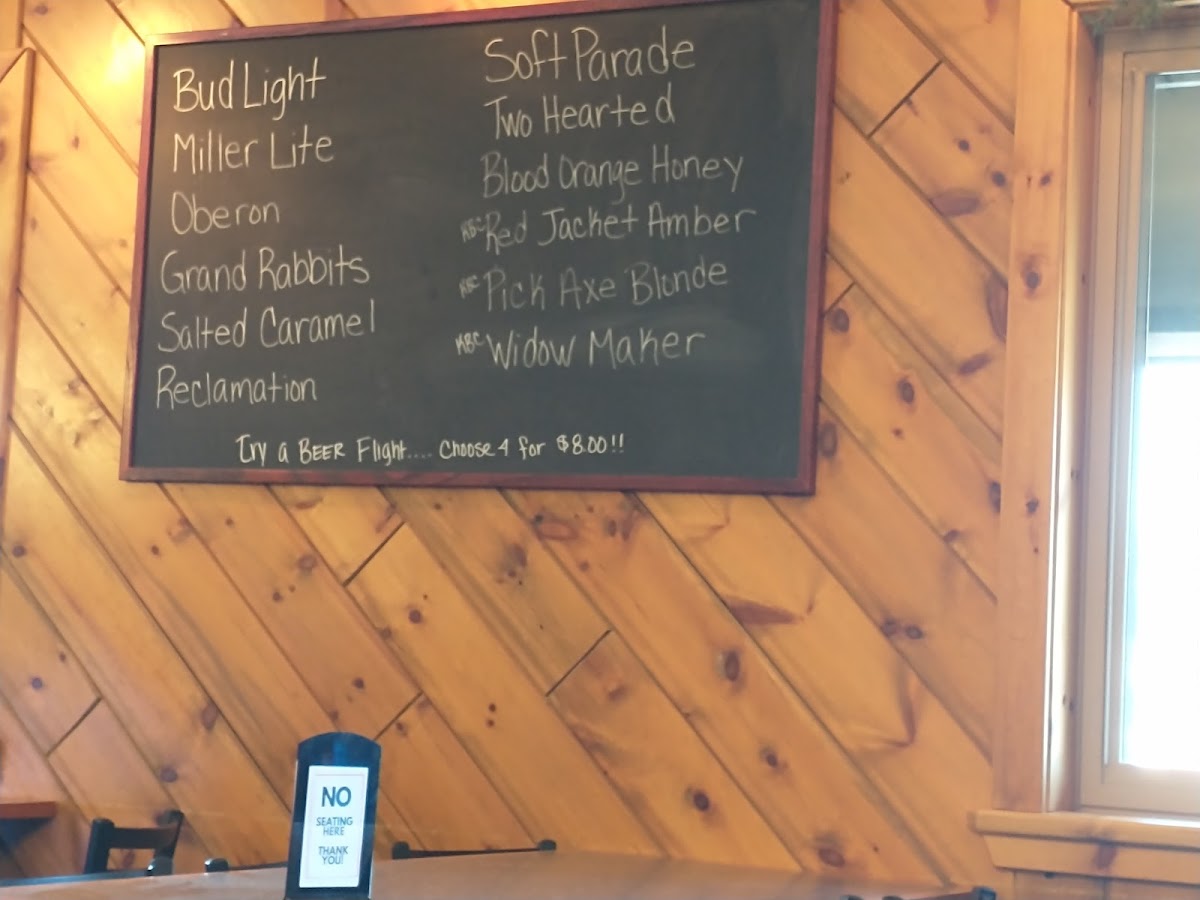 Bud Light
Miller Lite
Oberon
Grand Rabbits
Salted Caramel
Reclamation
Soft Parade
Two Hearted
Blood Orange Honey
KBC Red Jacket Amber
KBC Pick Axe Blonde
KBC Widow Maker
Try a BEER Flight.... Choose 4 for $8.00!!
NO
SEATING
HERE
THANK
YOU!